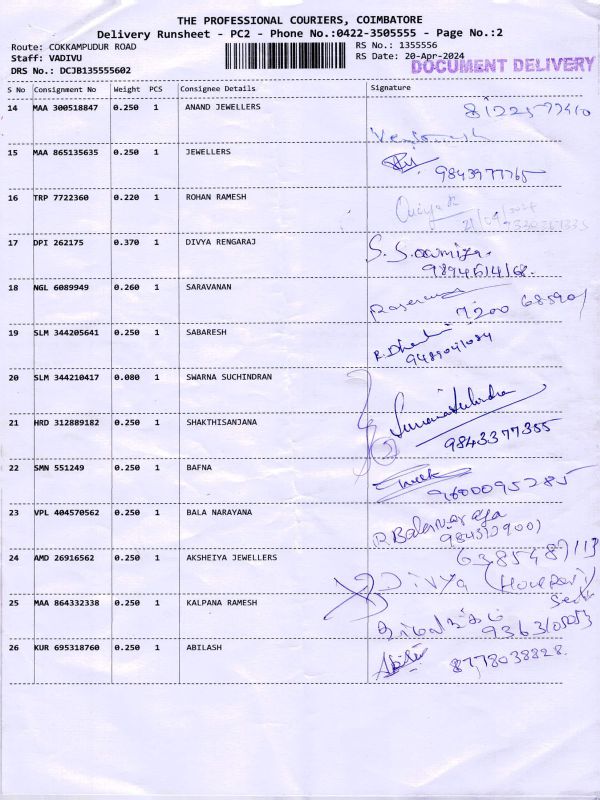 THE PROFESSIONAL COURIERS, COIMBATORE
Delivery Runsheet - PC2 - Phone No.:0422-3505555 - Page No.:2
Route: COKKAMPUDUR ROAD
RS No.: 1355556
Staff: VADIVU
RS Date: 20-Apr-2024
DRS No.: DCJB135555602
DOCUMENT DELIVERY
S No Consignment No Weight PCS Consignee Details Signature
14 MAA 300518847 0.250 1 ANAND JEWELLERS
15 MAA 865135635 0.250 1 JEWELLERS
9843977765
16 TRP 7722360 0.220 1 ROHAN RAMESH
17 DPI 262175 0.370 1 DIVYA RENGARAJ
S. Sowmiya.
9894614168.
18 NGL 6089949 0.260 1 SARAVANAN
7200 685901
19 SLM 344205641 0.250 1 SABARESH
9489041084
20 SLM 344210417 0.080 1 SWARNA SUCHINDRAN
21 HRD 312889182 0.250 1 SHAKTHISANJANA
2
9843377355
22 SMN 551249 0.250 1 BAFNA
9600095285
23 VPL 404570562 0.250 1 BALA NARAYANA
P. Balanaraya
24 AMD 26916562 0.250 1 AKSHEIYA JEWELLERS
6385487113
Divya
25 MAA 864332338 0.250 1 KALPANA RAMESH
9363105053
26 KUR 695318760 0.250 1 ABILASH
8778038828.